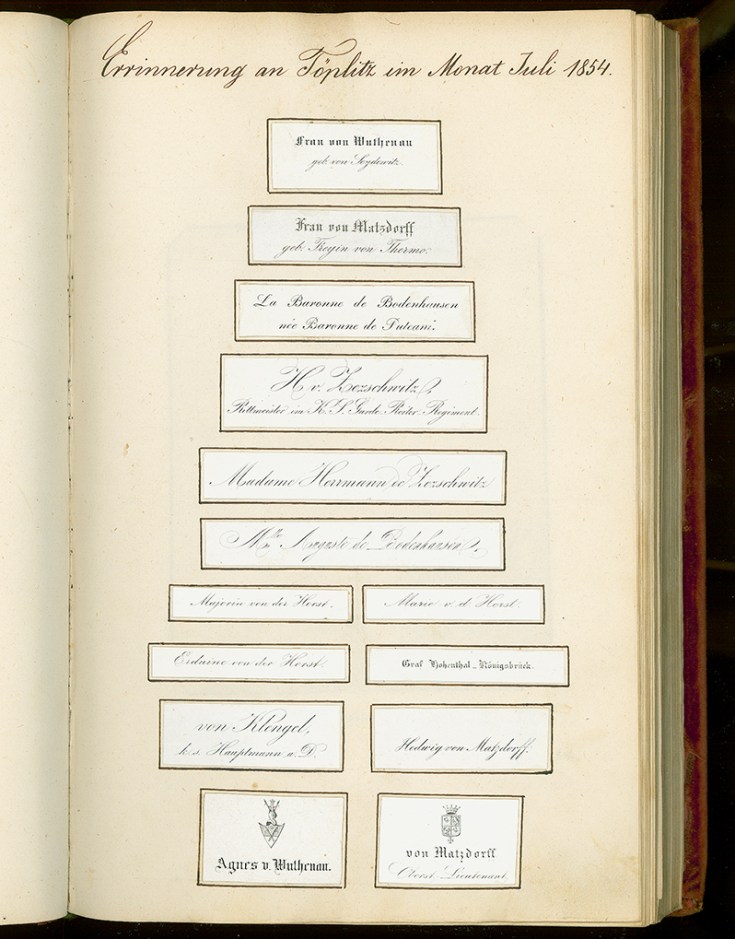 Errinnerung an Töplitz im Monat Juli 1854.
Frau von Wuthenau
geb. von Seydewitz.
Frau von Matzdorff
geb. Freyin von Thermo.
La Baronne de Bodenhausen
née Baronne de Puteani.
H. v. Zezschwitz,
Rittmeister im K. S. Garde-Reiter-Regiment.
Madame Herrmann de Zezschwitz
Mlle Auguste de Bodenhausen.
Majorin von der Horst.
Marie v. d. Horst.
Erduine von der Horst.
Graf Hohenthal-Königsbrück.
von Klengel,
k. s. Hauptmann a. D.
Hedwig von Matzdorff.
Agnes v. Wuthenau.
von Matzdorff
Oberst-Lieutenant